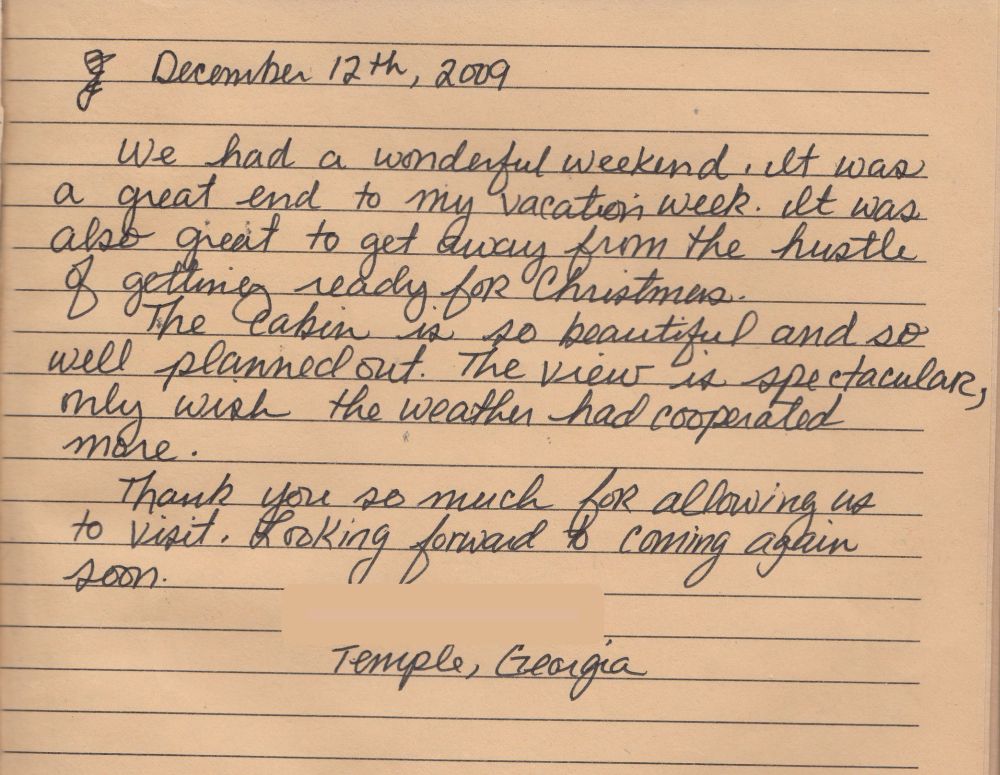 December 12th, 2009
We had a wonderful weekend. It was
a great end to my vacation week. It was
also great to get away from the hustle
of getting ready for Christmas.
The Cabin is so beautiful and so
well planned out. The view is spectacular,
only wish the weather had cooperated
more.
Thank you so much for allowing us
to visit. Looking forward to coming again
soon.
Temple, Georgia